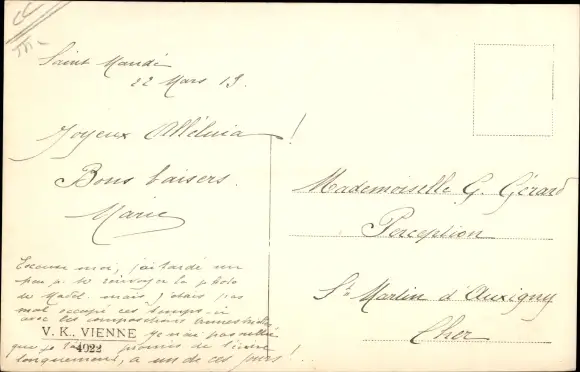 Saint Mandé
22 Mars 13.
Joyeux Alléluia !
Bons baisers.
Marie
Excuse moi, j'ai tardé un
peu p. te renvoyer la photo
de Madel. mais j'étais pas
mal occupée ces temps-ci
avec les compositions
V. K. VIENNE
4022
Je n'ai pas oublié
que je promis de t'écrire
longuement, à un de ces jours !
Mademoiselle G. Gérard
Perception
St Martin d'Auxigny
Cher